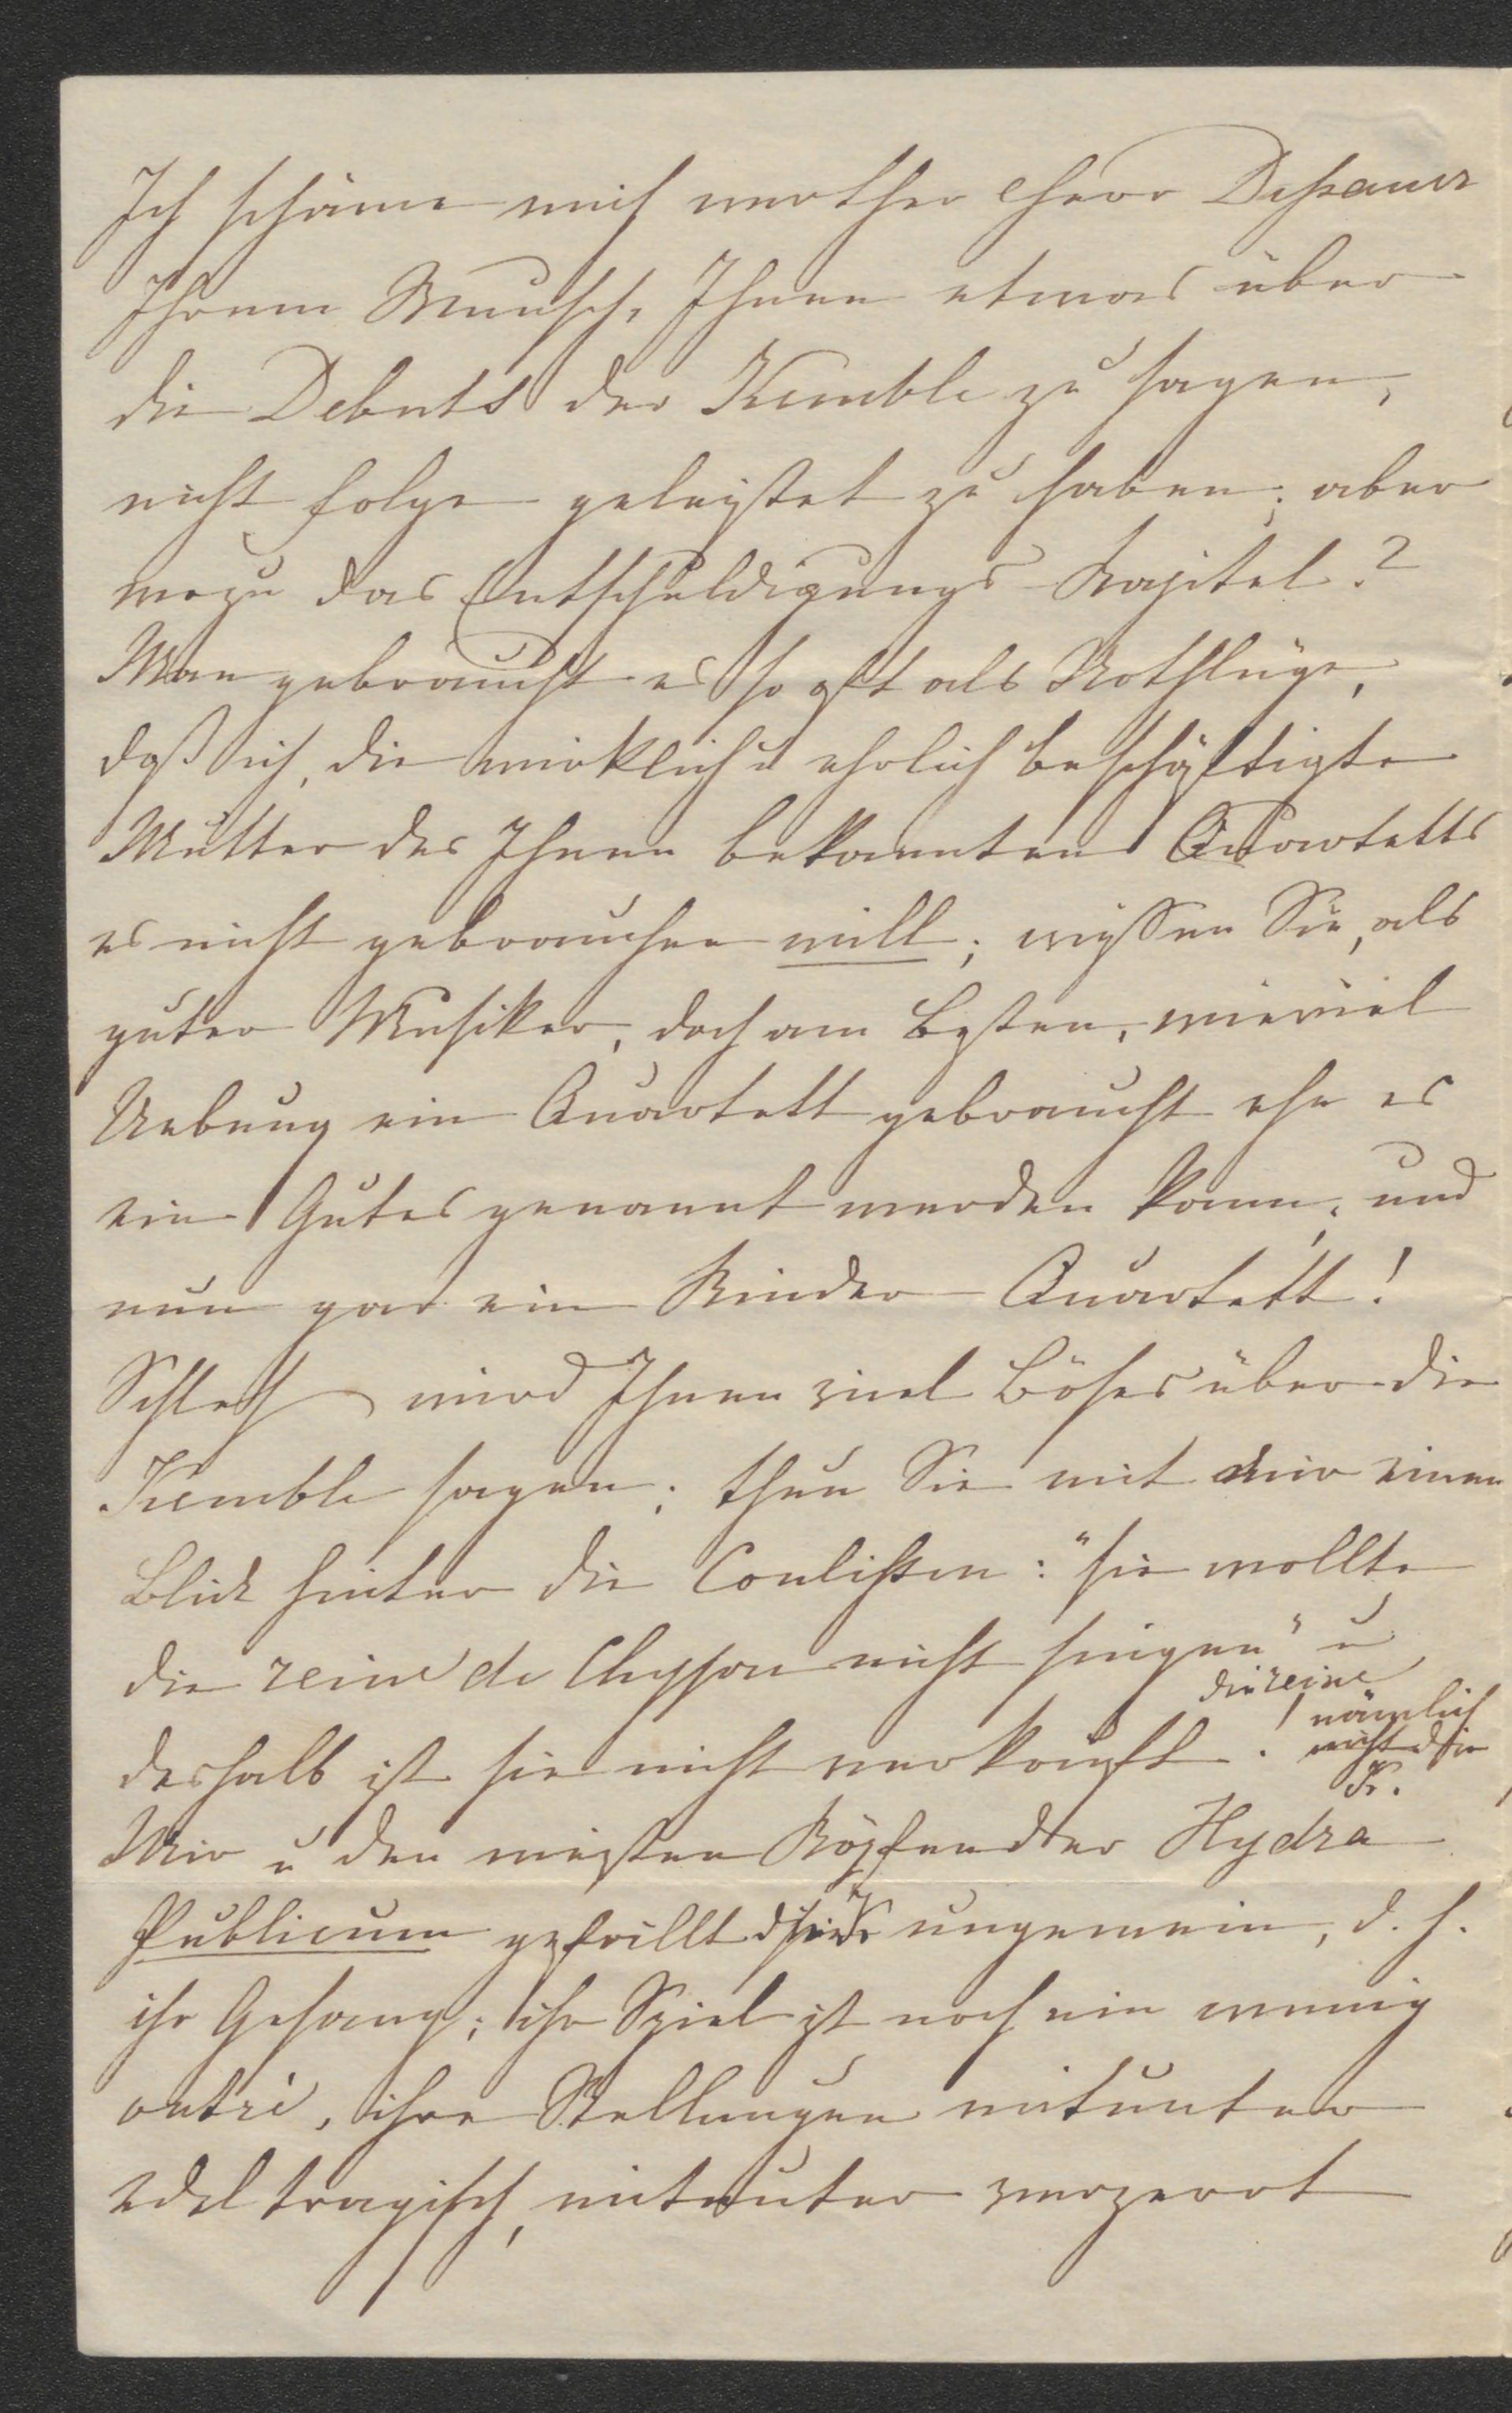 Ich schäme mich werther Herr Dessauer
Ihrem Wunsch, Ihnen etwas über
die Debuts der Kemble zu sagen,
nicht folge geleistet zu haben; aber
wozu das Entschuldigungs-Kapitel?
Man gebraucht es so oft als Nothlüge,
daß ich, die wirklich u ehrlich beschäftigte
Mutter des Ihnen bekannten Quartetts
es nicht gebrauchen will; wissen Sie, als
guter Musiker, doch am Besten, wieviel
Uebung ein Quartett gebraucht ehe es
ein Gutes genannt werden kann, und
nun gar ein Kinder-Quartett!
wird Ihnen viel Böses über die
Kemble sagen; thun Sie mit mir einen
Blick hinter die Coulissen: "sie wollte
die reine de Chypre nicht singen" u
deshalb ist sie nicht verkauft.! die reine
nämlich
nicht die
K.
Mir u den meisten Köpfen der Hydra
Publicum gefällt die K ungemein, d. h.
ihr Gesang; ihr Spiel ist noch ein wenig
outré, ihre Stellungen mitunter
edel tragisch, mitunter verzerrt